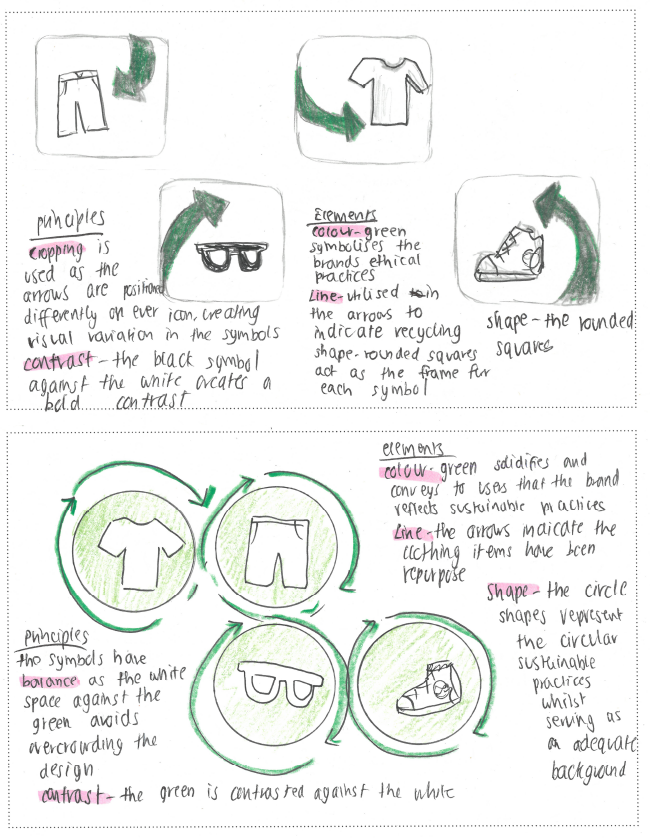 principles
cropping is
used as the
arrows are positioned
differently on ever icon, creating
visual variation in the symbols
contrast - the black symbol
against the white creates a
bold contrast
Elements
colour - green
symbolises the
brands ethical
practices
Line - utilised in
the arrows to
indicate recycling
shape - rounded squares
act as the frame for
each symbol
shape - the rounded
squares
elements
colour - green solidifies and
conveys to users that the brand
reflects sustainable practices
Line - the arrows indicate the
clothing items have been
repurpose
Shape - the circle
shapes represent
the circular
sustainable
practices
whilst
serving as
an adequate
background
Principles
the symbols have
balance as the white
space against the
green avoids
overcrowding the
design
contrast - the green is contrasted against the white